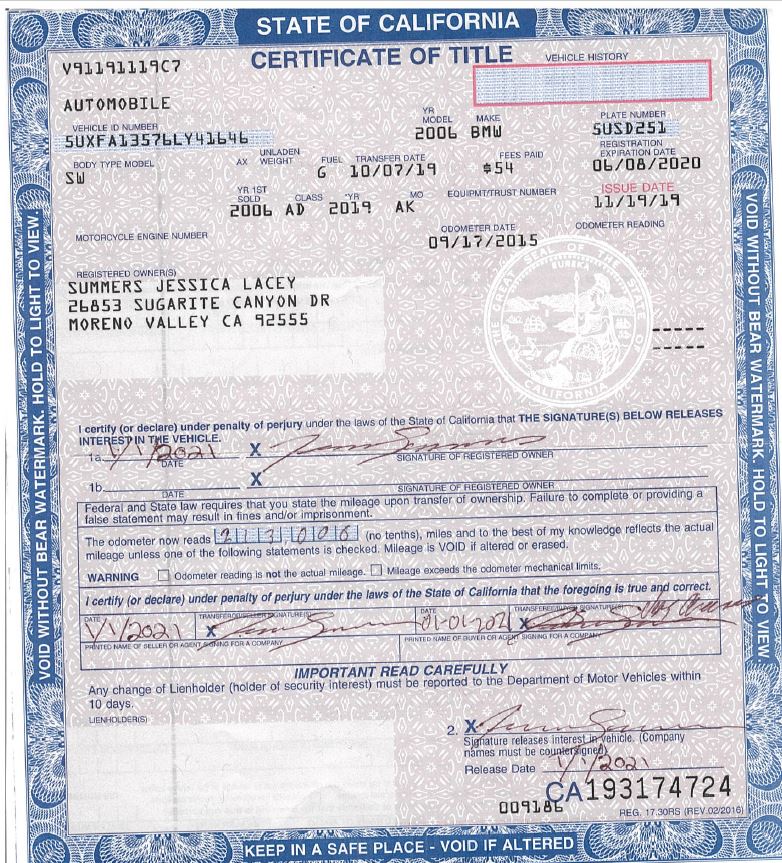 STATE OF CALIFORNIA
CERTIFICATE OF TITLE
VEHICLE HISTORY
V91191119C7
AUTOMOBILE
VEHICLE ID NUMBER
YR MODEL
MAKE
PLATE NUMBER
5UXFA13576LY41646
2006 BMW
5USD251
BODY TYPE MODEL
AX
UNLADEN WEIGHT
FUEL
TRANSFER DATE
FEES PAID
REGISTRATION EXPIRATION DATE
SW
G
10/07/19
$54
06/08/2020
YR 1ST SOLD
CLASS
*YR
MO
EQUIPMT/TRUST NUMBER
ISSUE DATE
2006 AD 2019 AK
11/19/19
MOTORCYCLE ENGINE NUMBER
ODOMETER DATE
ODOMETER READING
09/17/2015
REGISTERED OWNER(S)
SUMMERS JESSICA LACEY
26853 SUGARITE CANYON DR
MORENO VALLEY CA 92555
SEAL OF THE STATE OF CALIFORNIA
EUREKA
I certify (or declare) under penalty of perjury under the laws of the State of California that THE SIGNATURE(S) BELOW RELEASES
INTEREST IN THE VEHICLE.
1a. 1/1/2021 X
DATE SIGNATURE OF REGISTERED OWNER
1b. X
DATE SIGNATURE OF REGISTERED OWNER
Federal and State law requires that you state the mileage upon transfer of ownership. Failure to complete or providing a
false statement may result in fines and/or imprisonment.
The odometer now reads (no tenths), miles and to the best of my knowledge reflects the actual
mileage unless one of the following statements is checked. Mileage is VOID if altered or erased.
WARNING Odometer reading is not the actual mileage. Mileage exceeds the odometer mechanical limits.
I certify (or declare) under penalty of perjury under the laws of the State of California that the foregoing is true and correct.
DATE TRANSFEROR/SELLER SIGNATURE(S) DATE TRANSFEREE/BUYER SIGNATURE(S)
1/1/2021 X 01-01-2021 X
PRINTED NAME OF SELLER OR AGENT SIGNING FOR A COMPANY PRINTED NAME OF BUYER OR AGENT SIGNING FOR A COMPANY
IMPORTANT READ CAREFULLY
Any change of Lienholder (holder of security interest) must be reported to the Department of Motor Vehicles within
10 days.
LIENHOLDER(S)
2. X
Signature releases interest in vehicle. (Company
names must be countersigned)
Release Date 1/1/2021
CA193174724
009186
REG. 17.30RS (REV.02/2016)
KEEP IN A SAFE PLACE - VOID IF ALTERED
VOID WITHOUT BEAR WATERMARK. HOLD TO LIGHT TO VIEW.
VOID WITHOUT BEAR WATERMARK. HOLD TO LIGHT TO VIEW.